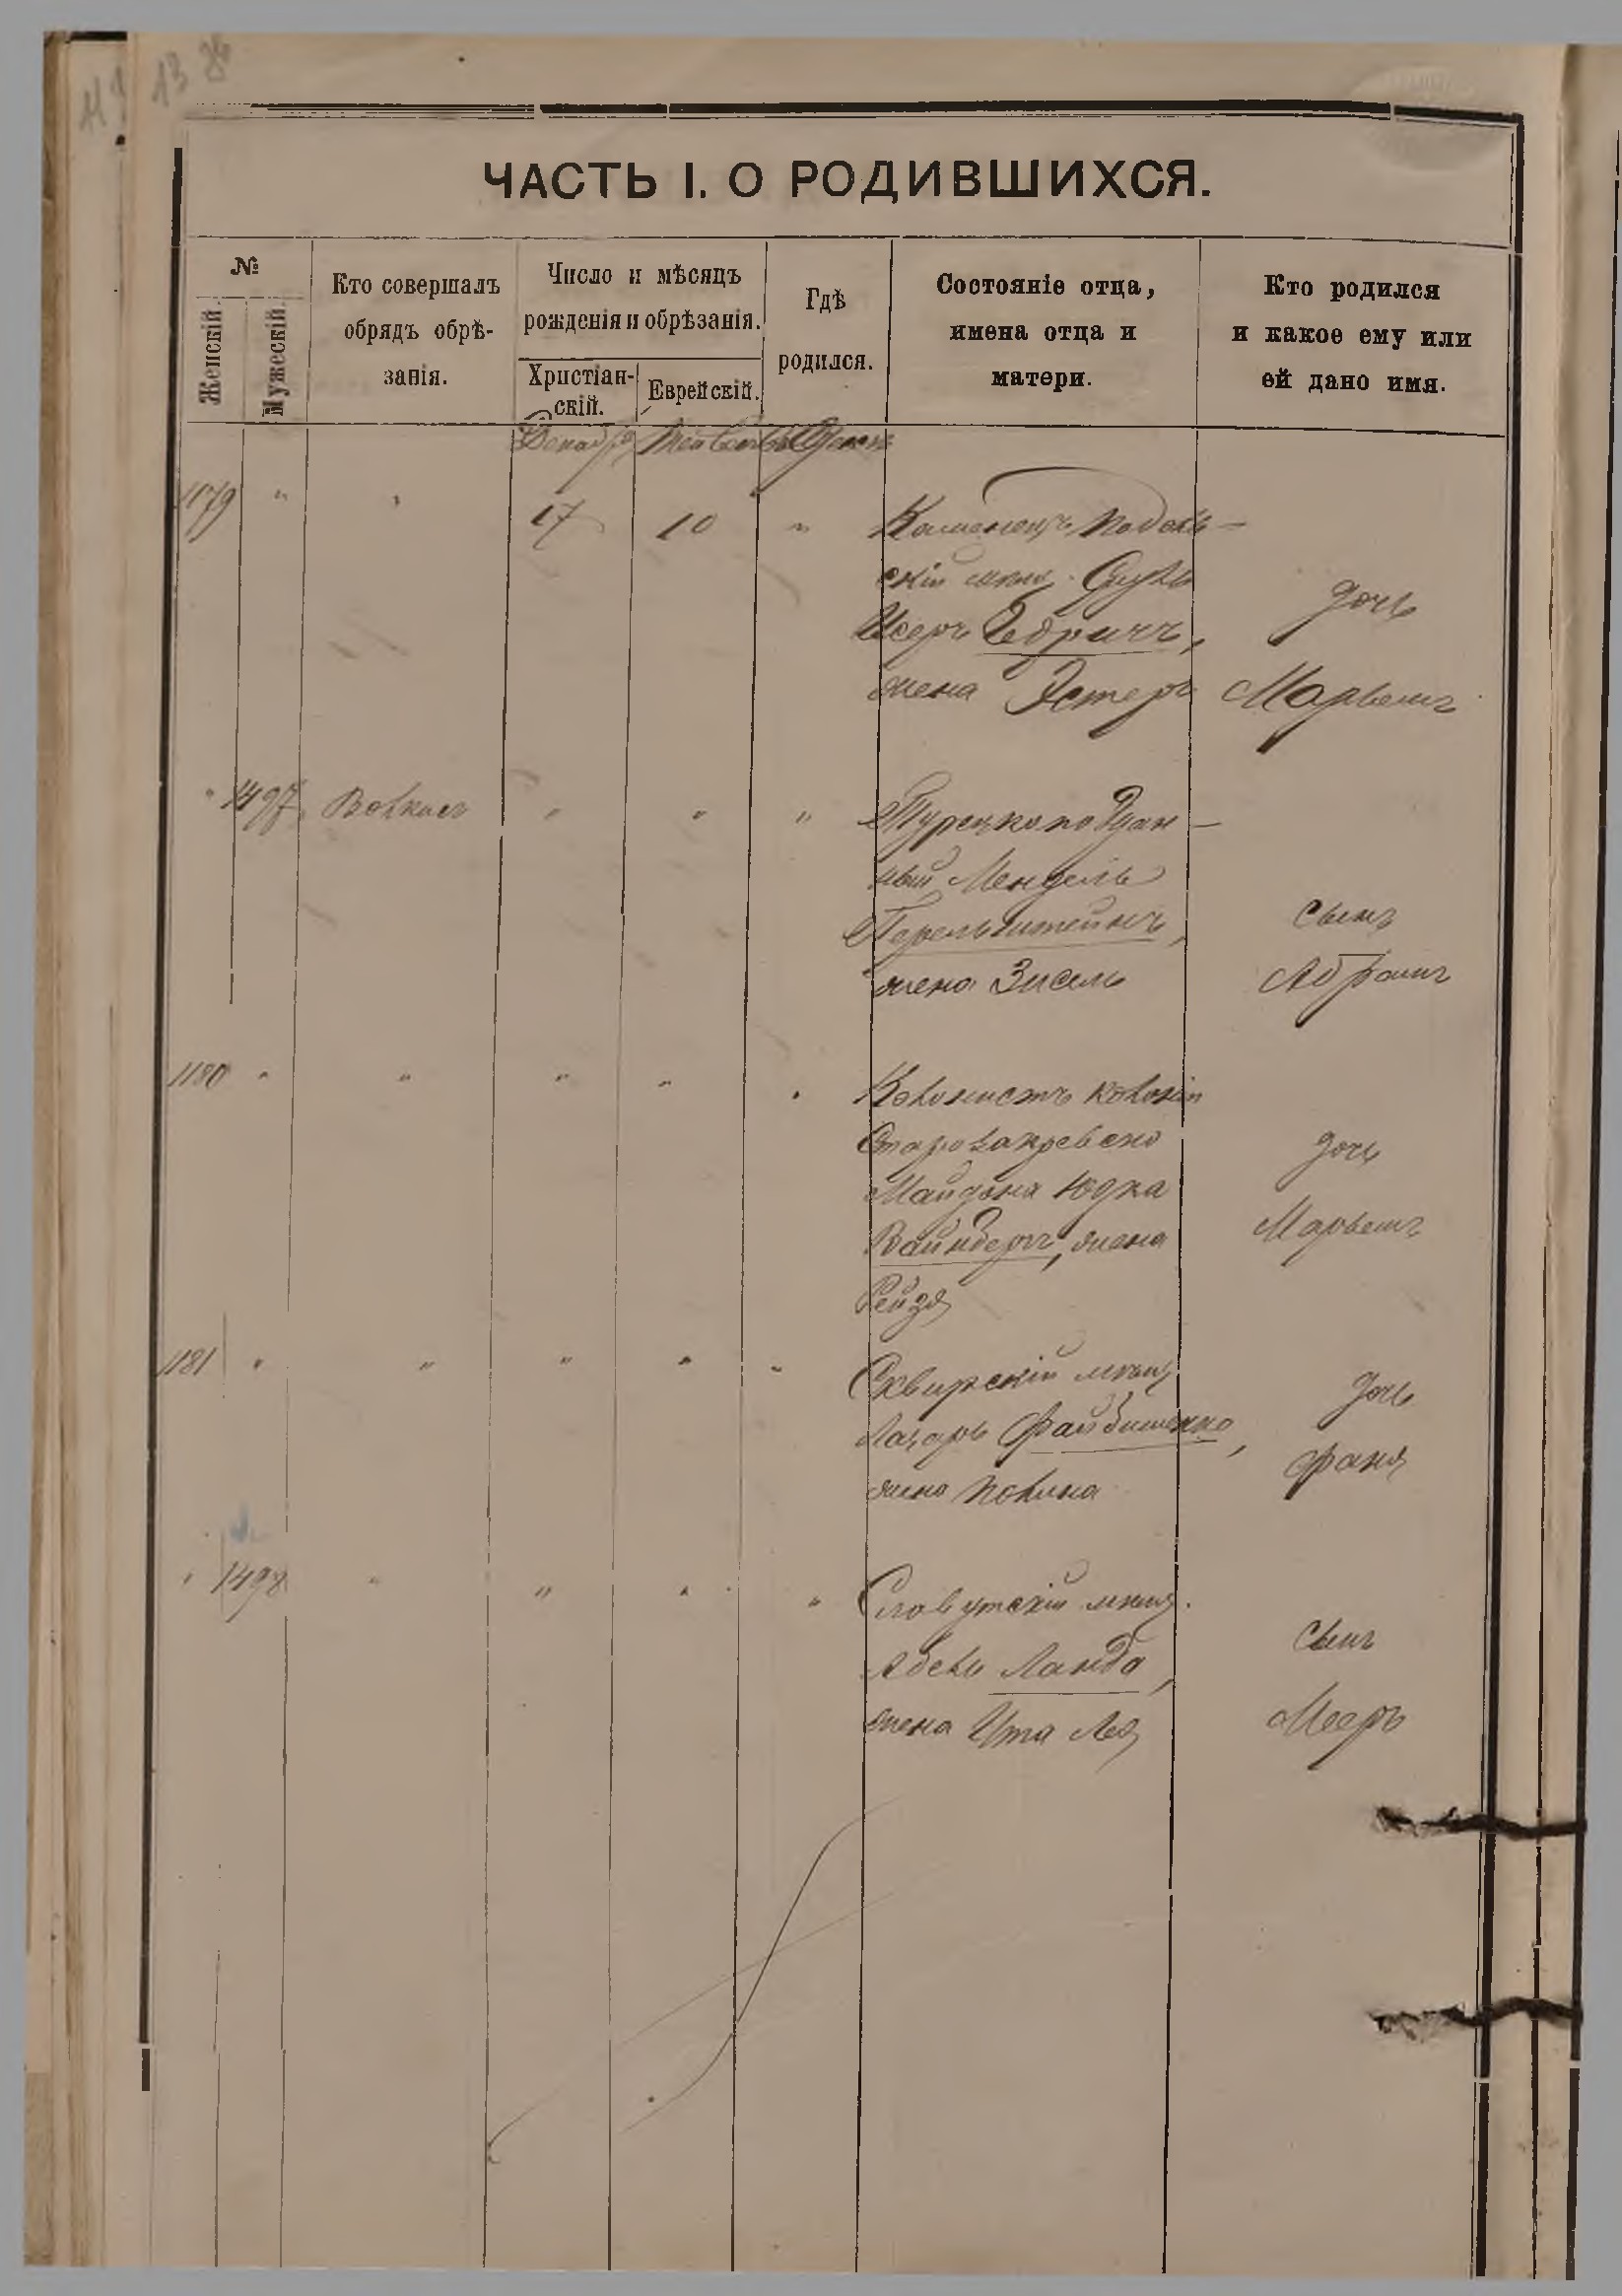 13
ЧАСТЬ I. О РОДИВШИХСЯ.
№
Женскій.
Мужескій.
Кто совершалъ
обрядъ обрѣ-
занія.
Число и мѣсяцъ
рожденія и обрѣзанія.
Христіан-
скій.
Еврейскій.
Гдѣ
родился.
Состояніе отца,
имена отца и
матери.
Кто родился
и какое ему или
ей дано имя.
Декабрь
1179 " " 17 10 " Каменецъ Подоль-
скій мѣщ. Сруль
Исеръ
жена Эстеръ
дочь
Марьемъ
" 1497 " " " Турецкоподдан-
ный Мендель
Перельштейнъ,
жена Зисель
сынъ
Абрамъ
1180 " " " " " Колонистъ колоніи
Майдана Юдка
Вайнбергъ, жена
Рейзя
дочь
Марьемъ
1181 " " " " " Сквирскій мѣщ.
Лазарь Файбишенко,
жена Полина
дочь
Фаня
" 1498 " " " " Славутскій мѣщ.
Абель Ланда,
жена Ита Лея
сынъ
Мееръ